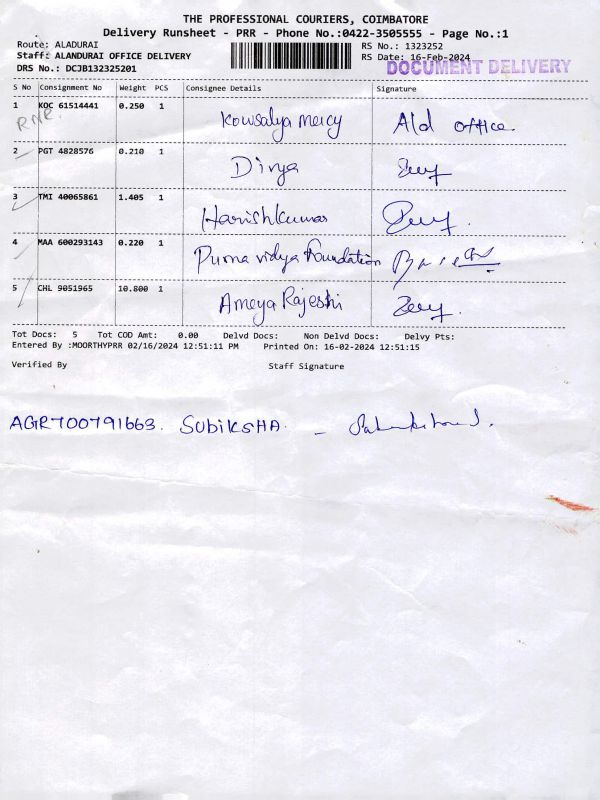 THE PROFESSIONAL COURIERS, COIMBATORE
Delivery Runsheet - PRR - Phone No.:0422-3505555 - Page No.:1
Route: ALADURAI
RS No.: 1323252
Staff: ALANDURAI OFFICE DELIVERY
RS Date: 16-Feb-2024
DRS No.: DCJB132325201
DOCUMENT DELIVERY
S No Consignment No Weight PCS Consignee Details Signature
1 KQC 61514441 0.250 1 Kowsalya mercy Ald office.
RNR.
2 PGT 4828576 0.210 1 Divya
3 TMI 40065861 1.405 1 Harishkumar
4 MAA 600293143 0.220 1 Purna vidya foundation
5 CHL 9051965 10.800 1 Ameya Rajeshi
Tot Docs: 5 Tot COD Amt: 0.00 Delvd Docs: Non Delvd Docs: Delvy Pts:
Entered By :MOORTHYPRR 02/16/2024 12:51:11 PM Printed On: 16-02-2024 12:51:15
Verified By Staff Signature
AGR700791663. SUBIKSHA. -